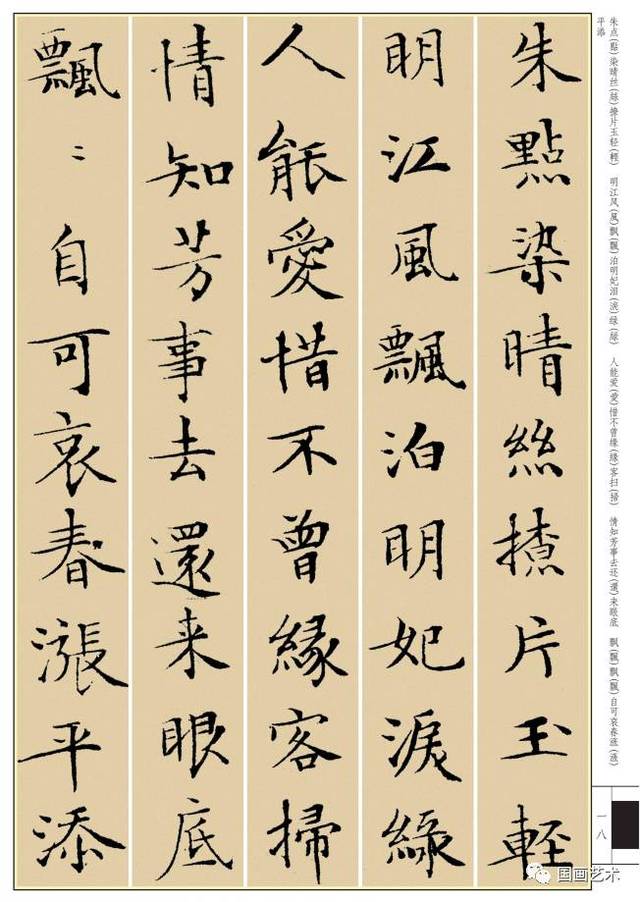 朱點染晴絲撩片玉輕
明江風飄泊明妃淚綠
人能愛惜不曾緣客掃
情知芳事去還来眼底
飄〻自可哀春漲平添
朱点(點)染晴丝(絲)撩片玉轻(輕) 明江风(風)飘(飄)泊明妃泪(淚)绿(綠) 人能爱(愛)惜不曾缘(緣)客扫(掃) 情知芳事去还(還)来眼底 飘(飄)飘(飄)自可哀春涨(漲)
平添
一八
国画艺术